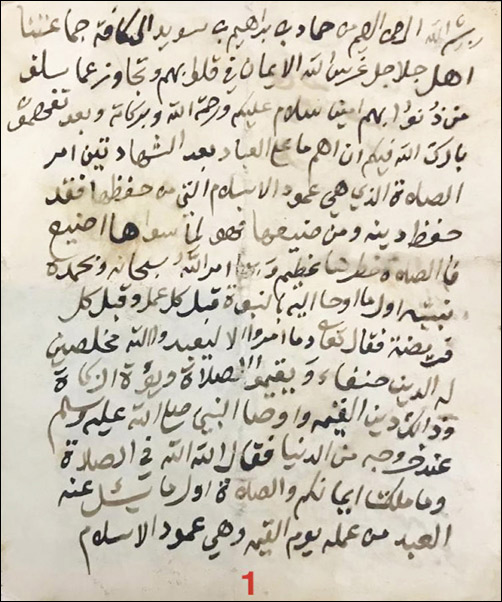 بسم الله الرحمن الرحيم من حماد بن ابراهيم بن سويد الى كافة جماعتنا
اهل جلاجل غرس الله الايمان في قلوبهم وتجاوز عما سلف
من ذنوبهم امين سلام عليكم ورحمة الله وبركاته وبعد
بارك الله فيكم ان اهم ما على العباد بعد الشهادتين امر
الصلاة الذي هي عمود الاسلام التي من حفظها فقد
حفظ دينه ومن ضيعها فهو لما سواها اضيع
فا الصلاة خطرها عظيم امر الله سبحانه وبحمده
نبيه اول ما اوحا اليه بالنبوة قبل كل عمل وقبل كل
فريضة فقال تعا وما امروا الا ليعبدوا الله مخلصين
له الدين حنفاء ويقيمو الصلاة ويؤتو الزكاة
وذالك دين القيمه واوصا النبي صلى الله عليه وسلم
عند خروجه من الدنيا فقال الله الله في الصلاة
وما ملكت ايمانكم والصلاة اول ما يسئل عنه
العبد من عمله يوم القيمه وهي عمود الاسلام
1